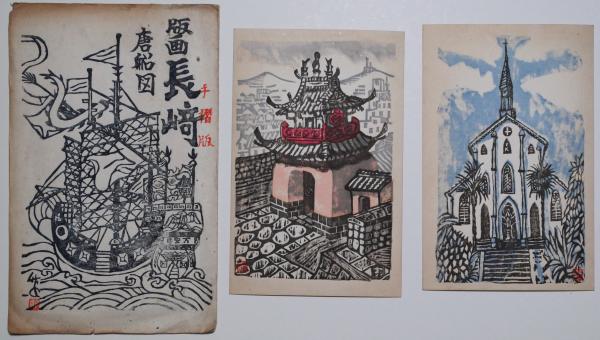 版画長﨑
唐船図
手摺版